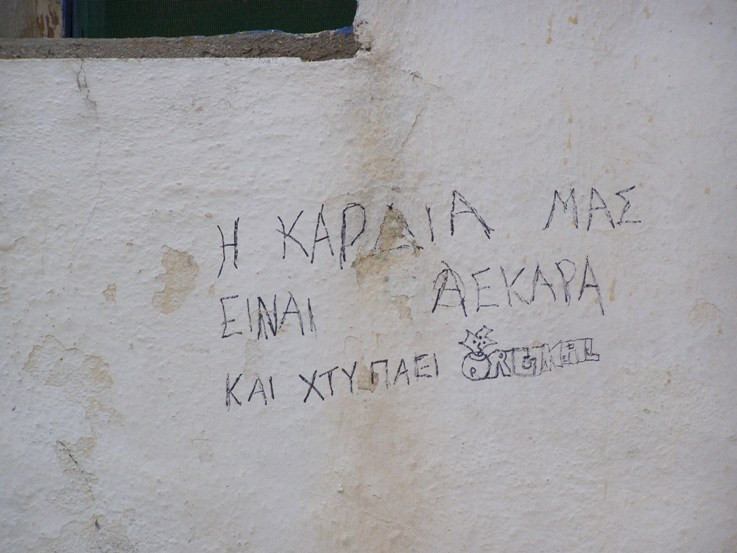 Η ΚΑΡΔΙΑ ΜΑΣ
ΕΙΝΑΙ ΔΕΚΑΡΑ
ΚΑΙ ΧΤΥΠΑΕΙ